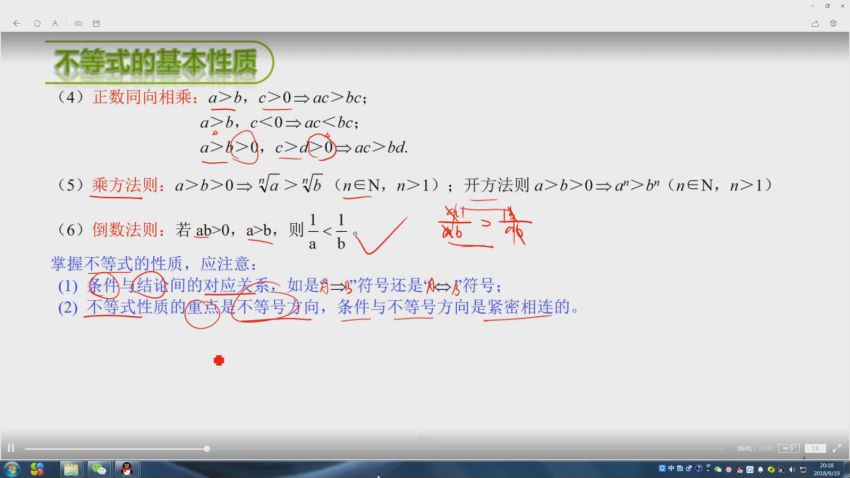 不等式的基本性质
（4）正数同向相乘：a＞b，c＞0⇒ac＞bc；
a＞b，c＜0⇒ac＜bc；
a＞b＞0，c＞d＞0⇒ac＞bd.
（5）乘方法则：a＞b＞0⇒ⁿ√a＞ⁿ√b（n∈N，n＞1）；开方法则 a＞b＞0⇒aⁿ＞bⁿ（n∈N，n＞1）
（6）倒数法则：若 ab>0，a>b，则 1/a < 1/b 。
掌握不等式的性质，应注意：
(1) 条件与结论间的对应关系，如是“⇒”符号还是“⇔”符号；
(2) 不等式性质的重点是不等号方向，条件与不等号方向是紧密相连的。
06:41
1X
中
20:18
2018/9/19